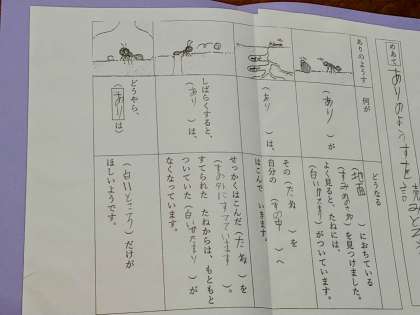 めあて ありのようすを読みとろ
ありのようす
何が
どうなる
(あり)が
(地面)におちている
(すみれのたね)を見つけました。
よく見ると、たねには、
(白いかたまり)がついています。
(あり)は、
その(たね)を
自分の(すの中)へ
はこんでいきます。
しばらくすると、
(あり)は、
せっかくはこんだ(たね)を
(すの外にすてています)。
すてられた たねからは、もともと
ついていた(白いかたまり)が
なくなっています。
どうやら、
(ありは)
(白いところ)だけが
ほしいようです。